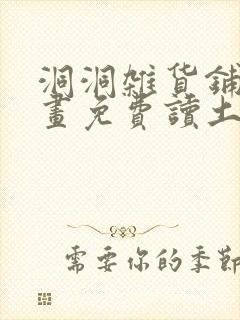 洞洞雜貨鋪
畫免費讀土
需要你的季節